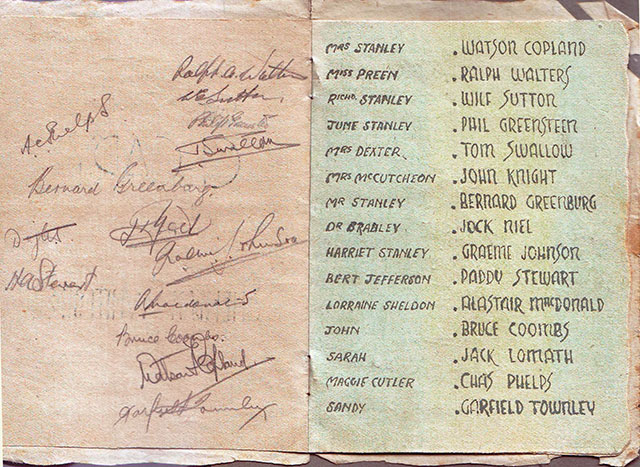 Ralph A Walters
W E Sutton
A C Phelps
T Swallow
Bernard Greenburg
Graeme Johnson
H A Stewart
A Macdonald
Bruce Coombs.
Watson Copland
Garfield Townley
MRS STANLEY . WATSON COPLAND
MISS PREEN . RALPH WALTERS
RICHD. STANLEY . WILF SUTTON
JUNE STANLEY . PHIL GREENSTEEN
MRS DEXTER . TOM SWALLOW
MRS MCCUTCHEON . JOHN KNIGHT
MR STANLEY . BERNARD GREENBURG
DR BRADLEY . JOCK NIEL
HARRIET STANLEY . GRAEME JOHNSON
BERT JEFFERSON . PADDY STEWART
LORRAINE SHELDON . ALASTAIR MACDONALD
JOHN . BRUCE COOMBS
SARAH . JACK LOMATH
MAGGIE CUTLER . CHAS PHELPS
SANDY . GARFIELD TOWNLEY